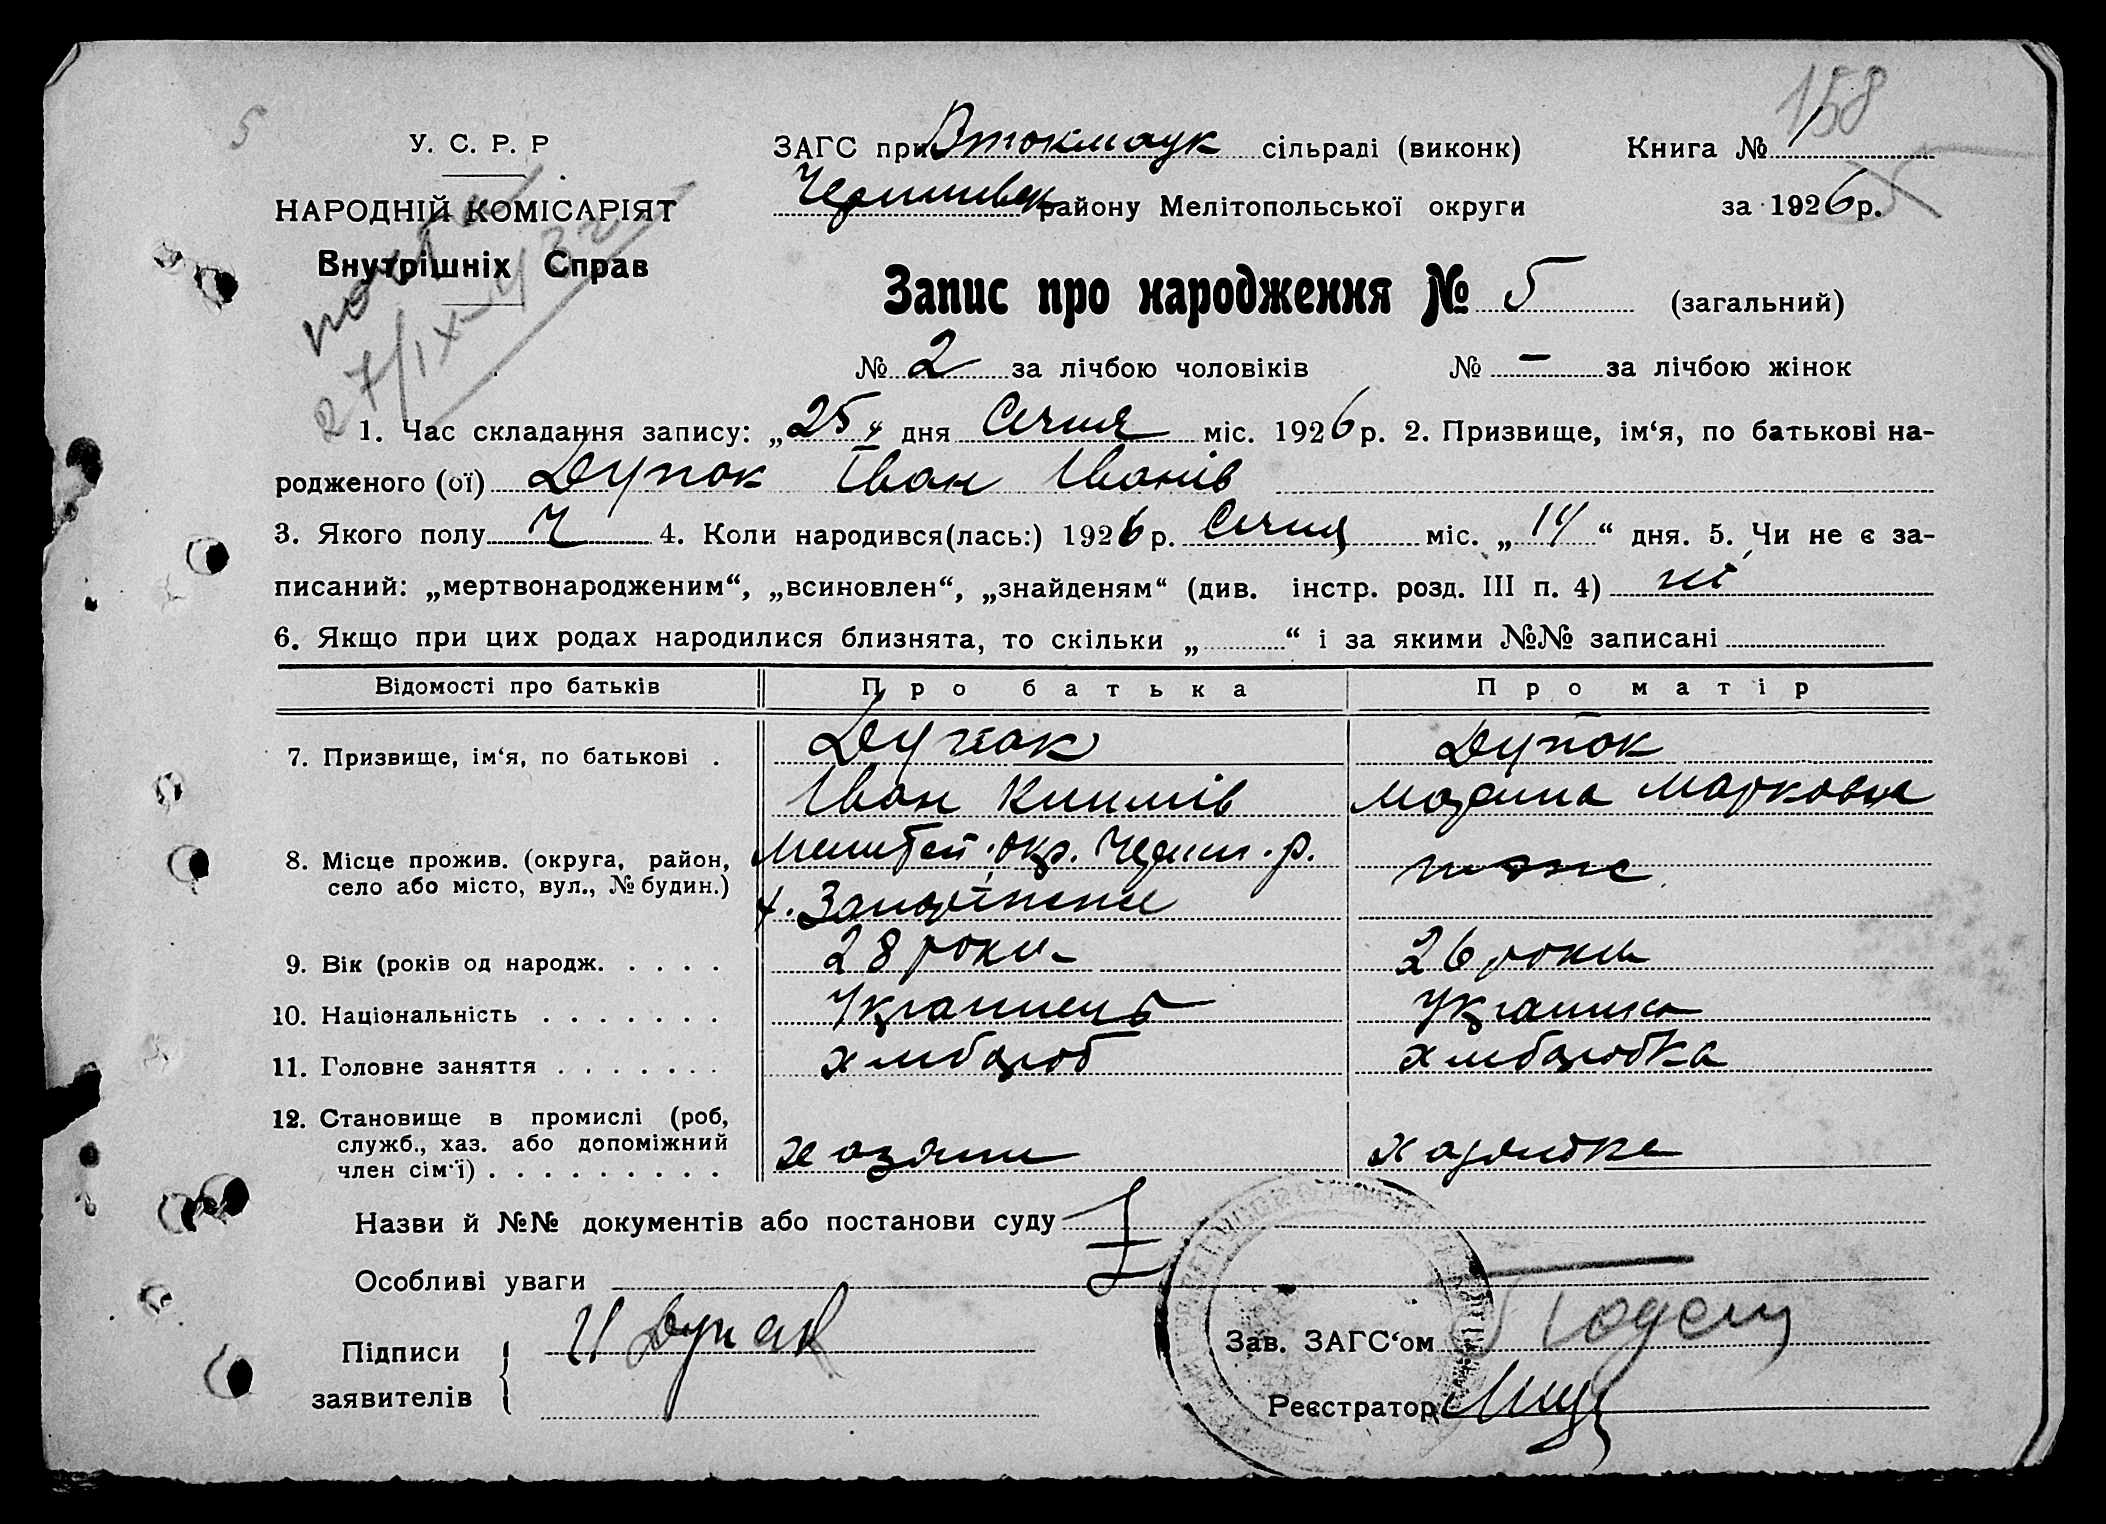 158
5
У. С. Р. Р
НАРОДНІЙ КОМІСАРІЯТ
Внутрішніх Справ
27/IX-432
ЗАГС при Втокмацк сільраді (виконк)
Книга № 1
Чернигивск району Мелітопольської округи
за 1926 р.
Запис про народження № 5 (загальний)
№ 2 за лічбою чоловіків № – за лічбою жінок
1. Час складання запису: „25“ дня Січня міс. 1926 р. 2. Призвище, ім‘я, по батькові на-
родженого (ої) Дупак Іван Іванів
3. Якого полу Ч 4. Коли народився(лась:) 1926 р. Січня міс. „14“ дня. 5. Чи не є за-
писаний: „мертвонародженим“, „всиновлен“, „знайденям“ (див. інстр. розд. III п. 4) ні
6. Якщо при цих родах народилися близнята, то скільки „ “ і за якими №№ записані
Відомості про батьків Про батька Про матір
7. Призвище, ім‘я, по батькові . Дупак Дупак
Іван Климів Марина Марковна
8. Місце прожив. (округа, район, село або місто, вул., № будин.) окр. р. тоже
9. Вік (років од народж. . . . . 28 роки 26 роки
10. Національність . . . . . . . Украинець Украинка
11. Головне заняття . . . . . . . хлибороб хлиборобка
12. Становище в промислі (роб, служб., хаз. або допоміжний член сім‘ї) . . . . . . . . . хазяин хазяйка
Назви й №№ документів або постанови суду
Особливі уваги
Підписи заявителів И Дупак
Зав. ЗАГС‘ом
Реєстратор